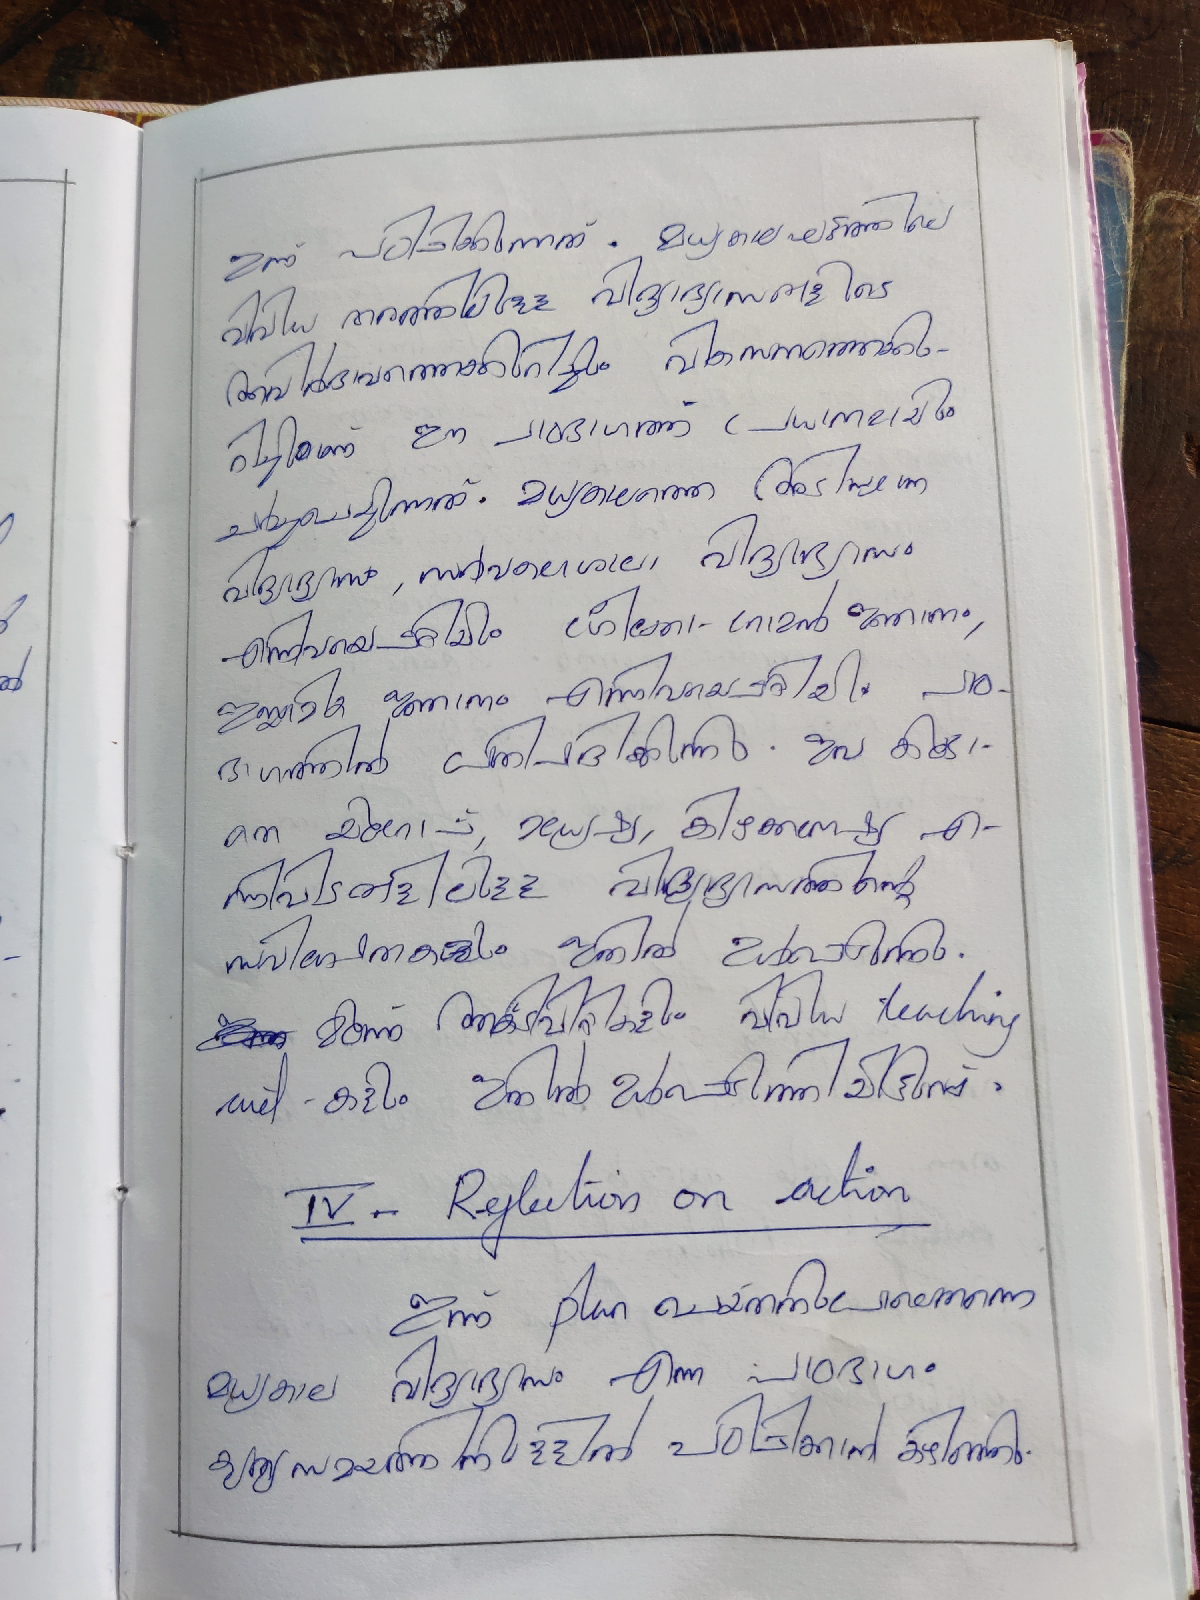 ഇന്ന് പഠിപ്പിക്കുന്നത്. മധ്യകാലഘട്ടത്തിലെ
വിവിധ തരത്തിലുള്ള വിദ്യാഭ്യാസങ്ങളുടെ
ആവിർഭാവത്തെക്കുറിച്ചും വികസനത്തെക്കു-
റിച്ചുമാണ് ഈ പാഠഭാഗത്ത് പ്രധാനമായും
ചർച്ചചെയ്യുന്നത്. മധ്യകാലത്തെ
വിദ്യാഭ്യാസം, സർവകലാശാലാ വിദ്യാഭ്യാസം
എന്നിവയെപ്പറ്റിയും ഗ്രീക്കോ-റോമൻ ജ്ഞാനം,
ഇസ്ലാമിക ജ്ഞാനം എന്നിവയെപ്പറ്റിയും പാഠ-
ഭാഗത്തിൽ പ്രതിപാദിക്കുന്നു. ഇവ കൂടാ-
തെ യൂറോപ്പ്, മധ്യേഷ്യ, കിഴക്കനേഷ്യ എ-
ന്നിവിടങ്ങളിലുള്ള വിദ്യാഭ്യാസത്തിന്റെ
സവിശേഷതകളും ഇതിൽ ഉൾപ്പെടുന്നു.
മൂന്ന് ആക്ടിവിറ്റികളും വിവിധ teaching
aid-കളും ഇതിൽ ഉൾപ്പെടുത്തിയിട്ടുണ്ട്.
IV - Reflection on action
ഇന്ന് plan ചെയ്തതുപോലെതന്നെ
മധ്യകാല വിദ്യാഭ്യാസം എന്ന പാഠഭാഗം
കൃത്യസമയത്തിനുള്ളിൽ പഠിപ്പിക്കാൻ കഴിഞ്ഞു.